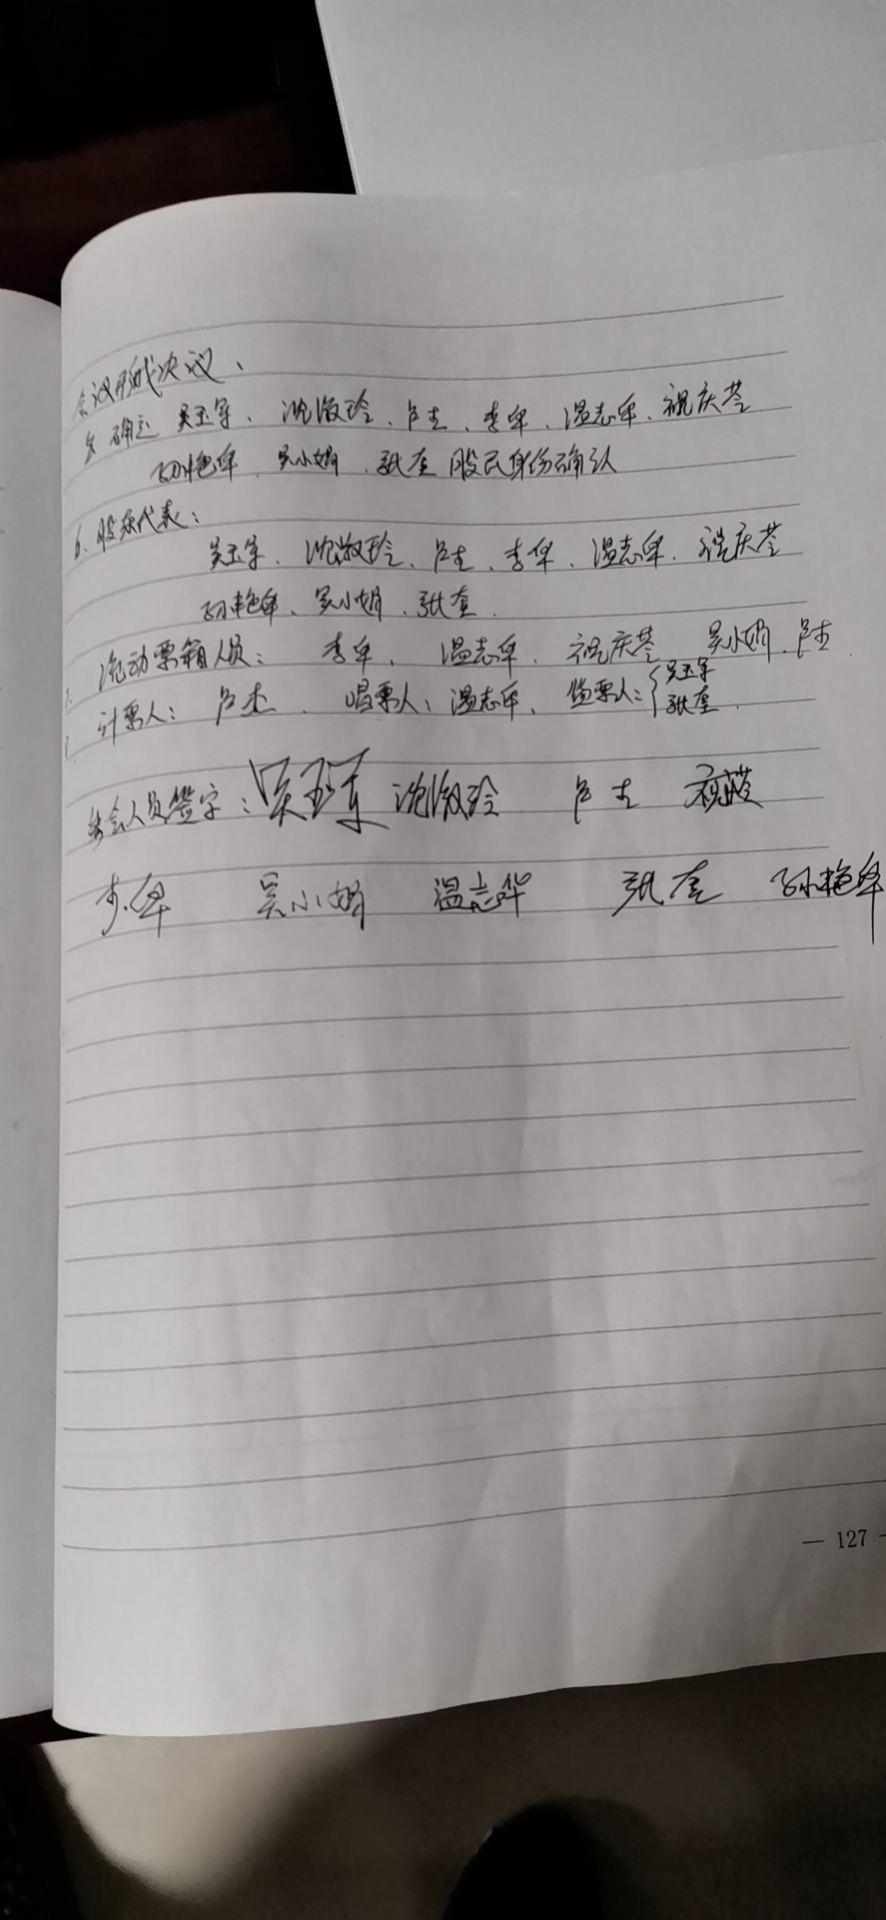 会议形成决议、
确定 吴玉军、沈淑玲、卢杰、李华、温志华、祝庆芬
孙艳华、吴小娟、张奎 股民身份确认
6. 股东代表:
吴玉军、沈淑玲、卢杰、李华、温志华、祝庆芬
孙艳华、吴小娟、张奎
流动票箱人员: 李华、温志华、祝庆芬 吴小娟、卢杰
计票人: 卢杰、唱票人: 温志华、监票人: 吴玉军
张奎
参会人员签字: 吴玉军 沈淑玲 卢杰
李华 吴小娟 温志华 张奎 孙艳华
— 127